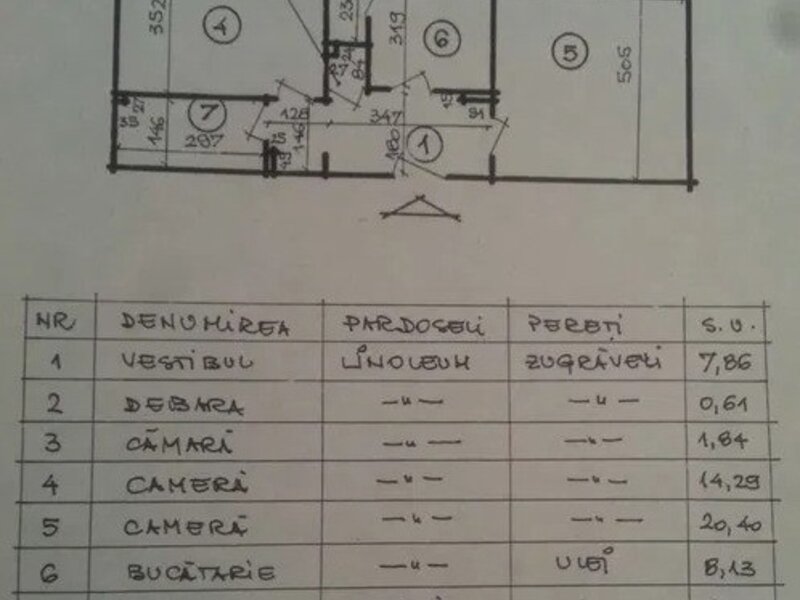 352
4
23
319
6
5
505
84
7
27
146
287
128
146
347
180
1
91
NR DENUMIREA PARDOSELI PEREȚI S.U.
1 VESTIBUL LINOLEUM ZUGRĂVELI 7,86
2 DEBARA —〃— —〃— 0,61
3 CĂMARĂ —〃— —〃— 1,84
4 CAMERĂ —〃— —〃— 14,29
5 CAMERĂ —〃— —〃— 20,40
6 BUCĂTARIE —〃— ULEI 8,13